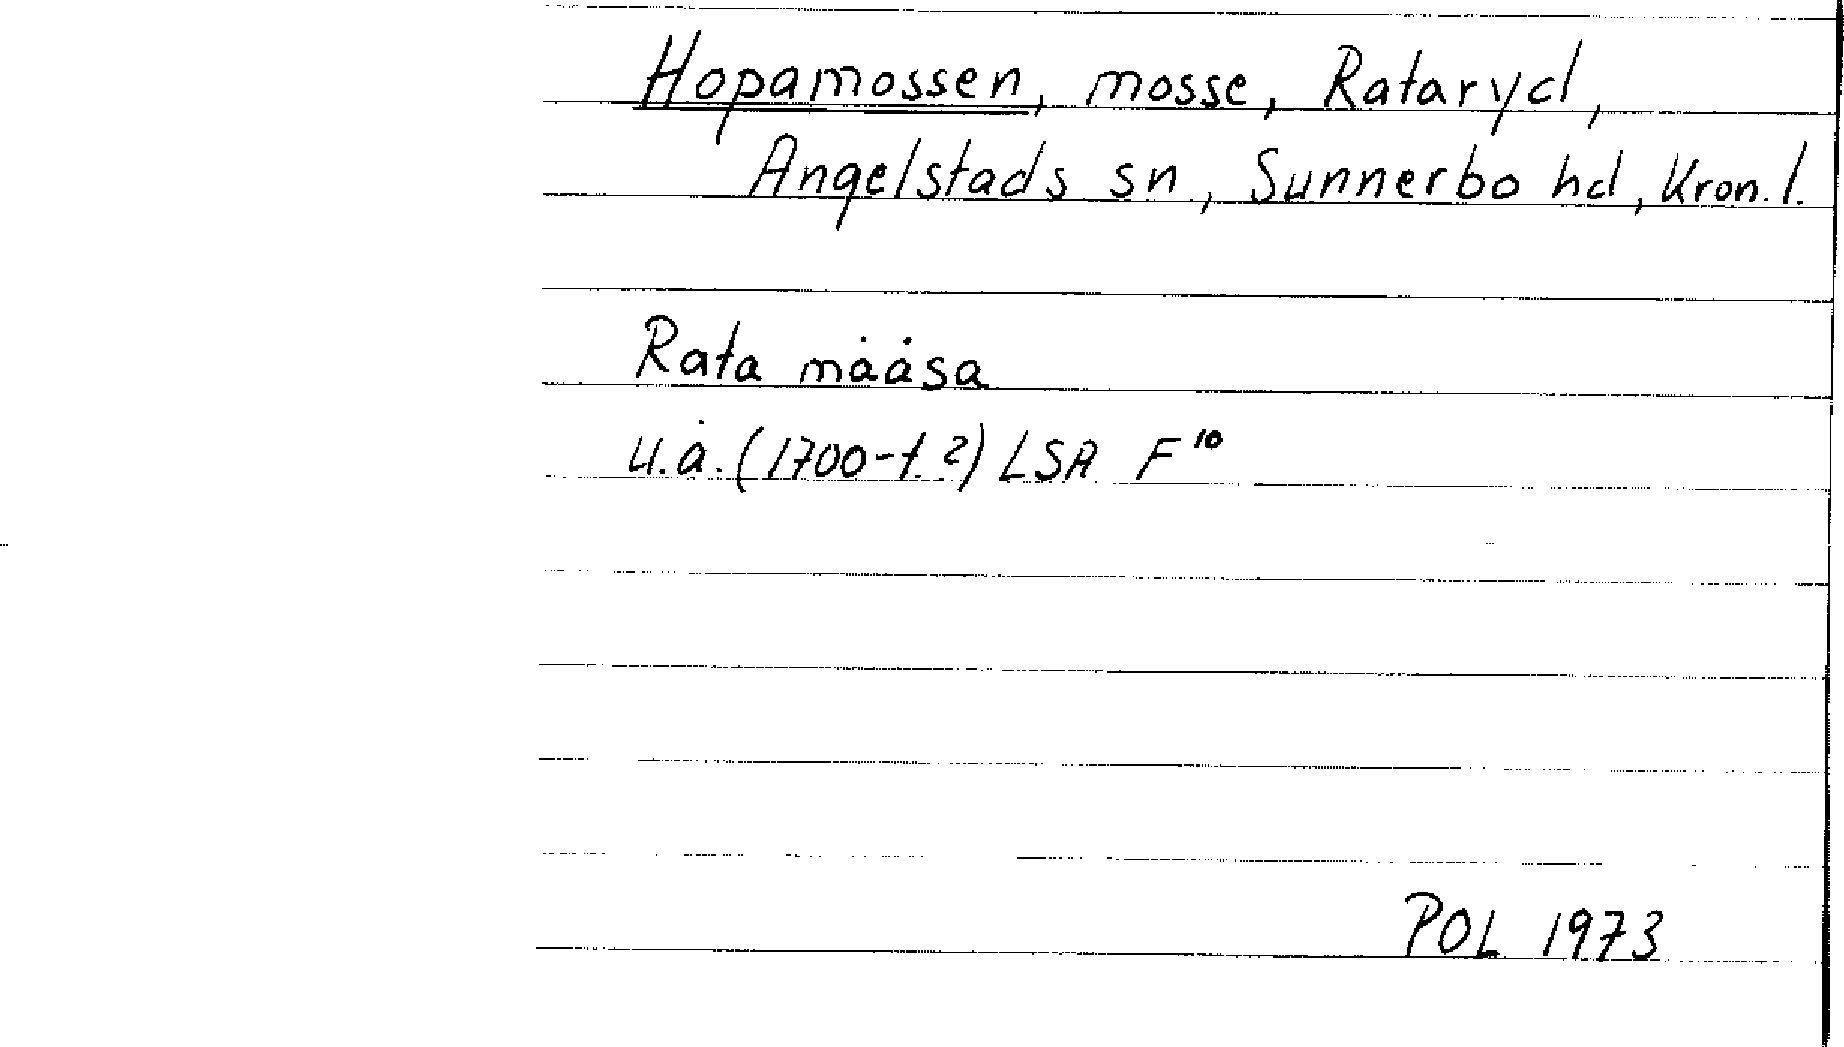 Hopamossen, mosse, Rataryd,
Angelstads sn, Sunnerbo hd, Kron. l.
Rata mååsa
u.å. (1700-t.?) LSA F¹⁰
POL 1973